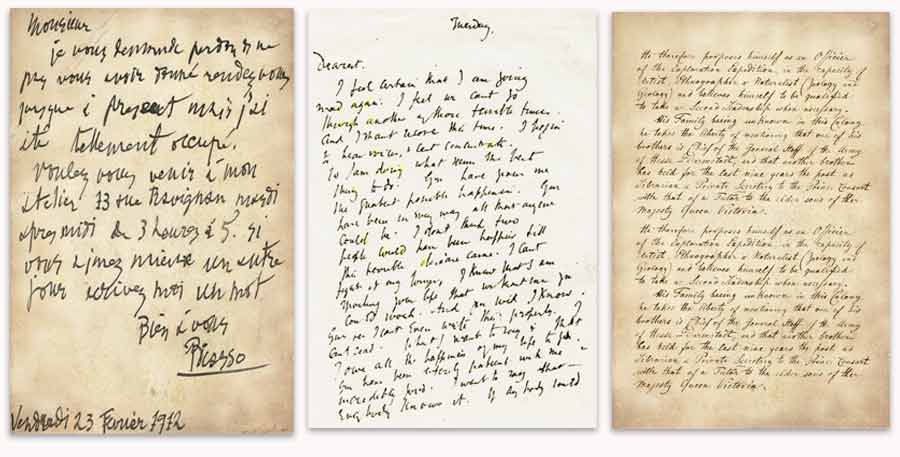 Monsieur
je vous demande perdon de ne
pas vous avoir donné rendez vous
jusque à present mais j'ai
ete tellement occupé.
Voulez vous venir à mon
atelier 13 rue Ravignan mardi
apres midi de 3 heures à 5. si
vous aimez mieux un autre
jour ecrivez moi un mot
Bien à vous
Picasso
Vendredi 23 Fevrier 1912
Tuesday.
Dearest.
I feel certain that I am going
mad again. I feel we cant go
through another of those terrible times.
And I shant recover this time. I begin
to hear voices, & cant concentrate.
So I am doing what seems the best
thing to do. You have given me
the greatest possible happiness. You
have been in every way all that anyone
could be. I dont think two
people could have been happier till
this terrible disease came. I cant
fight it any longer, I know that I am
spoiling your life, that without me you
could work. And you will I know.
You see I cant even write this properly. I
cant read. What I want to say is that
I owe all the happiness of my life to you.
You have been entirely patient with me &
incredibly good. I want to say that —
everybody knows it. If anybody could
He therefore proposes himself as an Officier
of the Exploration Expedition in the capacity of
Artist, Photographer & Naturalist (Zoology and
Geology) and believes himself to be qualified
to take a Second Leadership when necessary.
His Family being unknown in this Colony
he takes the liberty of mentioning that one of his
brothers is Chief of the General Staff of the Army
of Hesse Darmstadt, and that another brother
has held for the last nine years the post as
Librarian & Private Secretary to the Prince Consort
with that of a Tutor to the elder sons of Her
Majesty Queen Victoria.
He therefore proposes himself as an Officier
of the Exploration Expedition in the capacity of
Artist, Photographer & Naturalist (Zoology and
Geology) and believes himself to be qualified
to take a Second Leadership when necessary.
His Family being unknown in this Colony
he takes the liberty of mentioning that one of his
brothers is Chief of the General Staff of the Army
of Hesse Darmstadt, and that another brother
has held for the last nine years the post as
Librarian & Private Secretary to the Prince Consort
with that of a Tutor to the elder sons of Her
Majesty Queen Victoria.